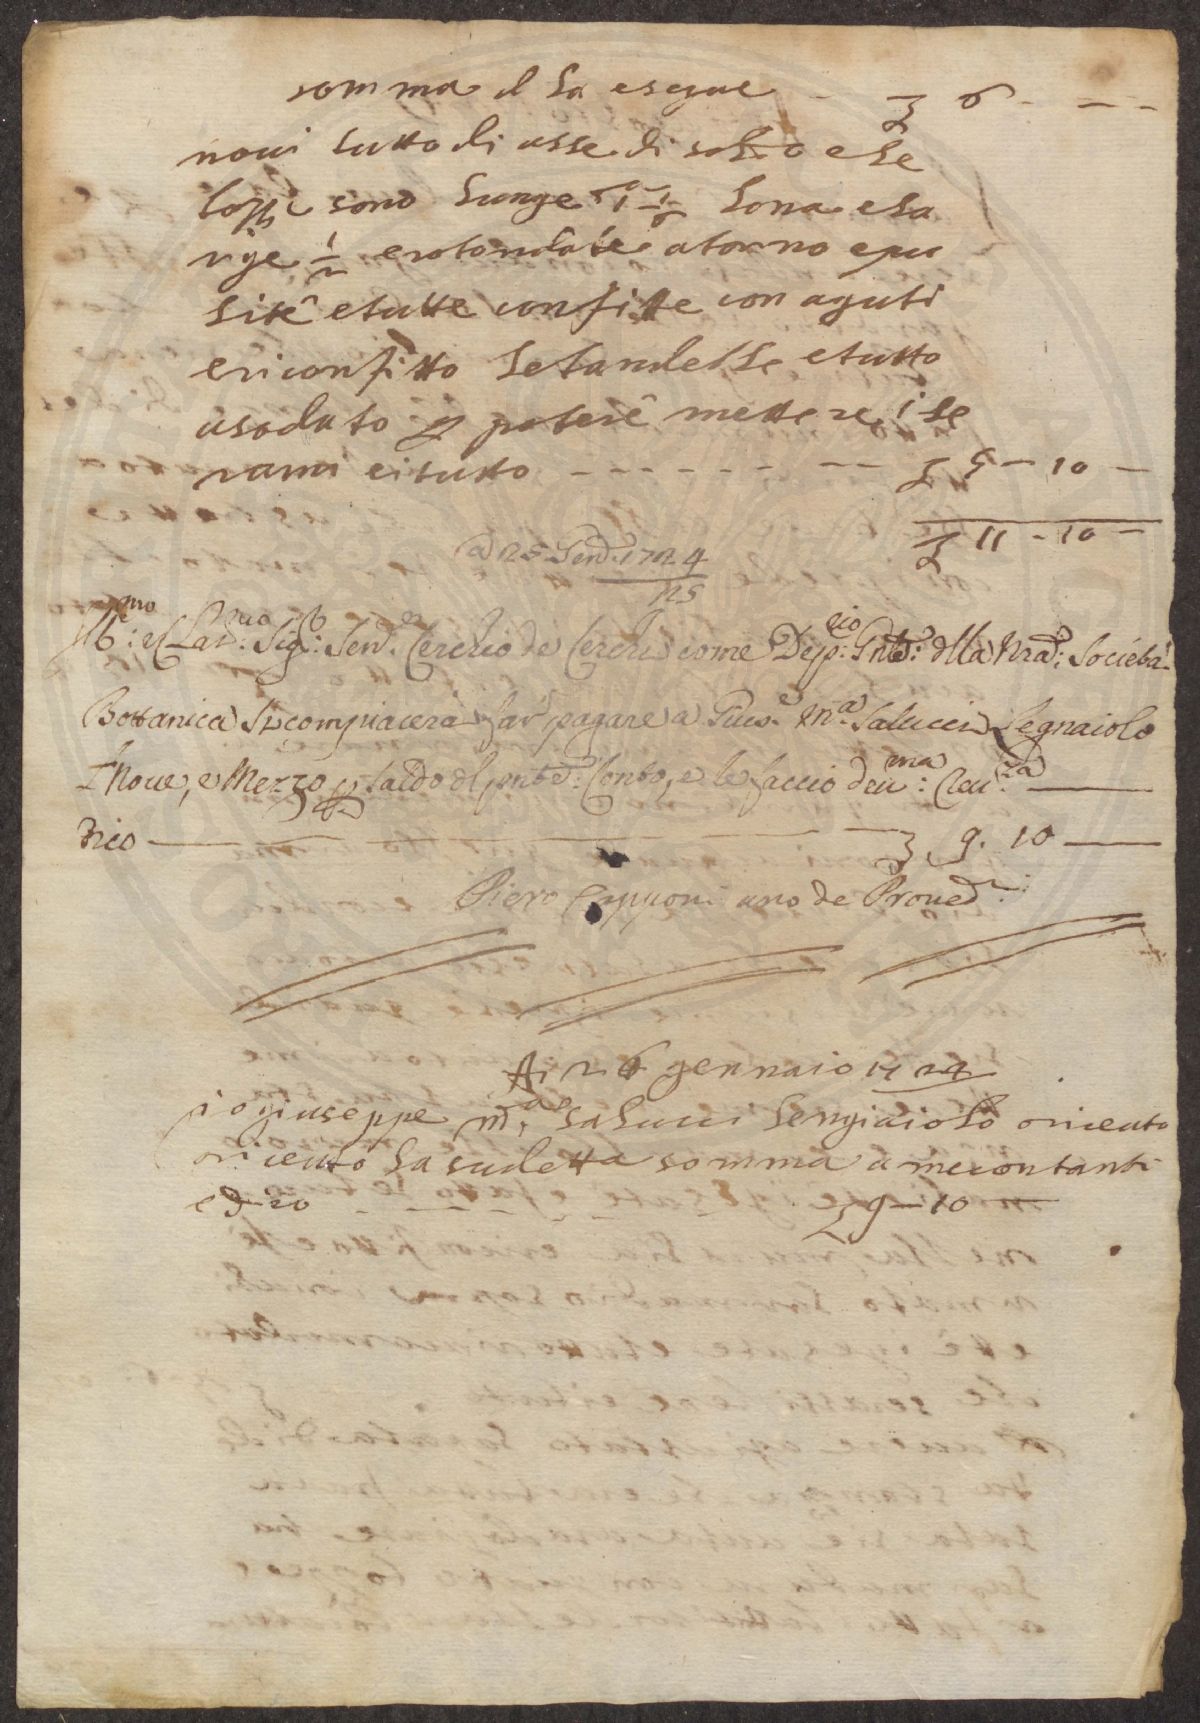 somma il la esegue - £ 6 - — -
noui tutto di asse di e le
sono lunge 1 1/2 lona e la
1/2 e rotondate atorno e pu
lite e tutte confitte con aguti
e riconfitto le bandelle e tutto
asodato p potere mettere i se
rami ei tutto - - - - - - - £ 5 - 10 -
£ 11 - 10 -
A 25 Genn.o 1724
25
Ill.mo: e Clar.mo Sig.r: Sen.re Cerchio de Cerchi come Dep.: dlla Nra: Società
Bottanica Si compiacera far pagare a Gius.e M.a Salucci Legnaiolo
£ Noue, e Mezzo p saldo dl pnte: Conto, e le faccio deu.ma: Reu.za
Dico — £ 9. 10 —
Piero Capponi uno de Proued.ri:
A 26 gennaio 1724
io giuseppe m.a salucci lengiaiolo o riceuto
o riceuto la sudetta somma a me contanti
e dico - - - - - £ 9 - 10